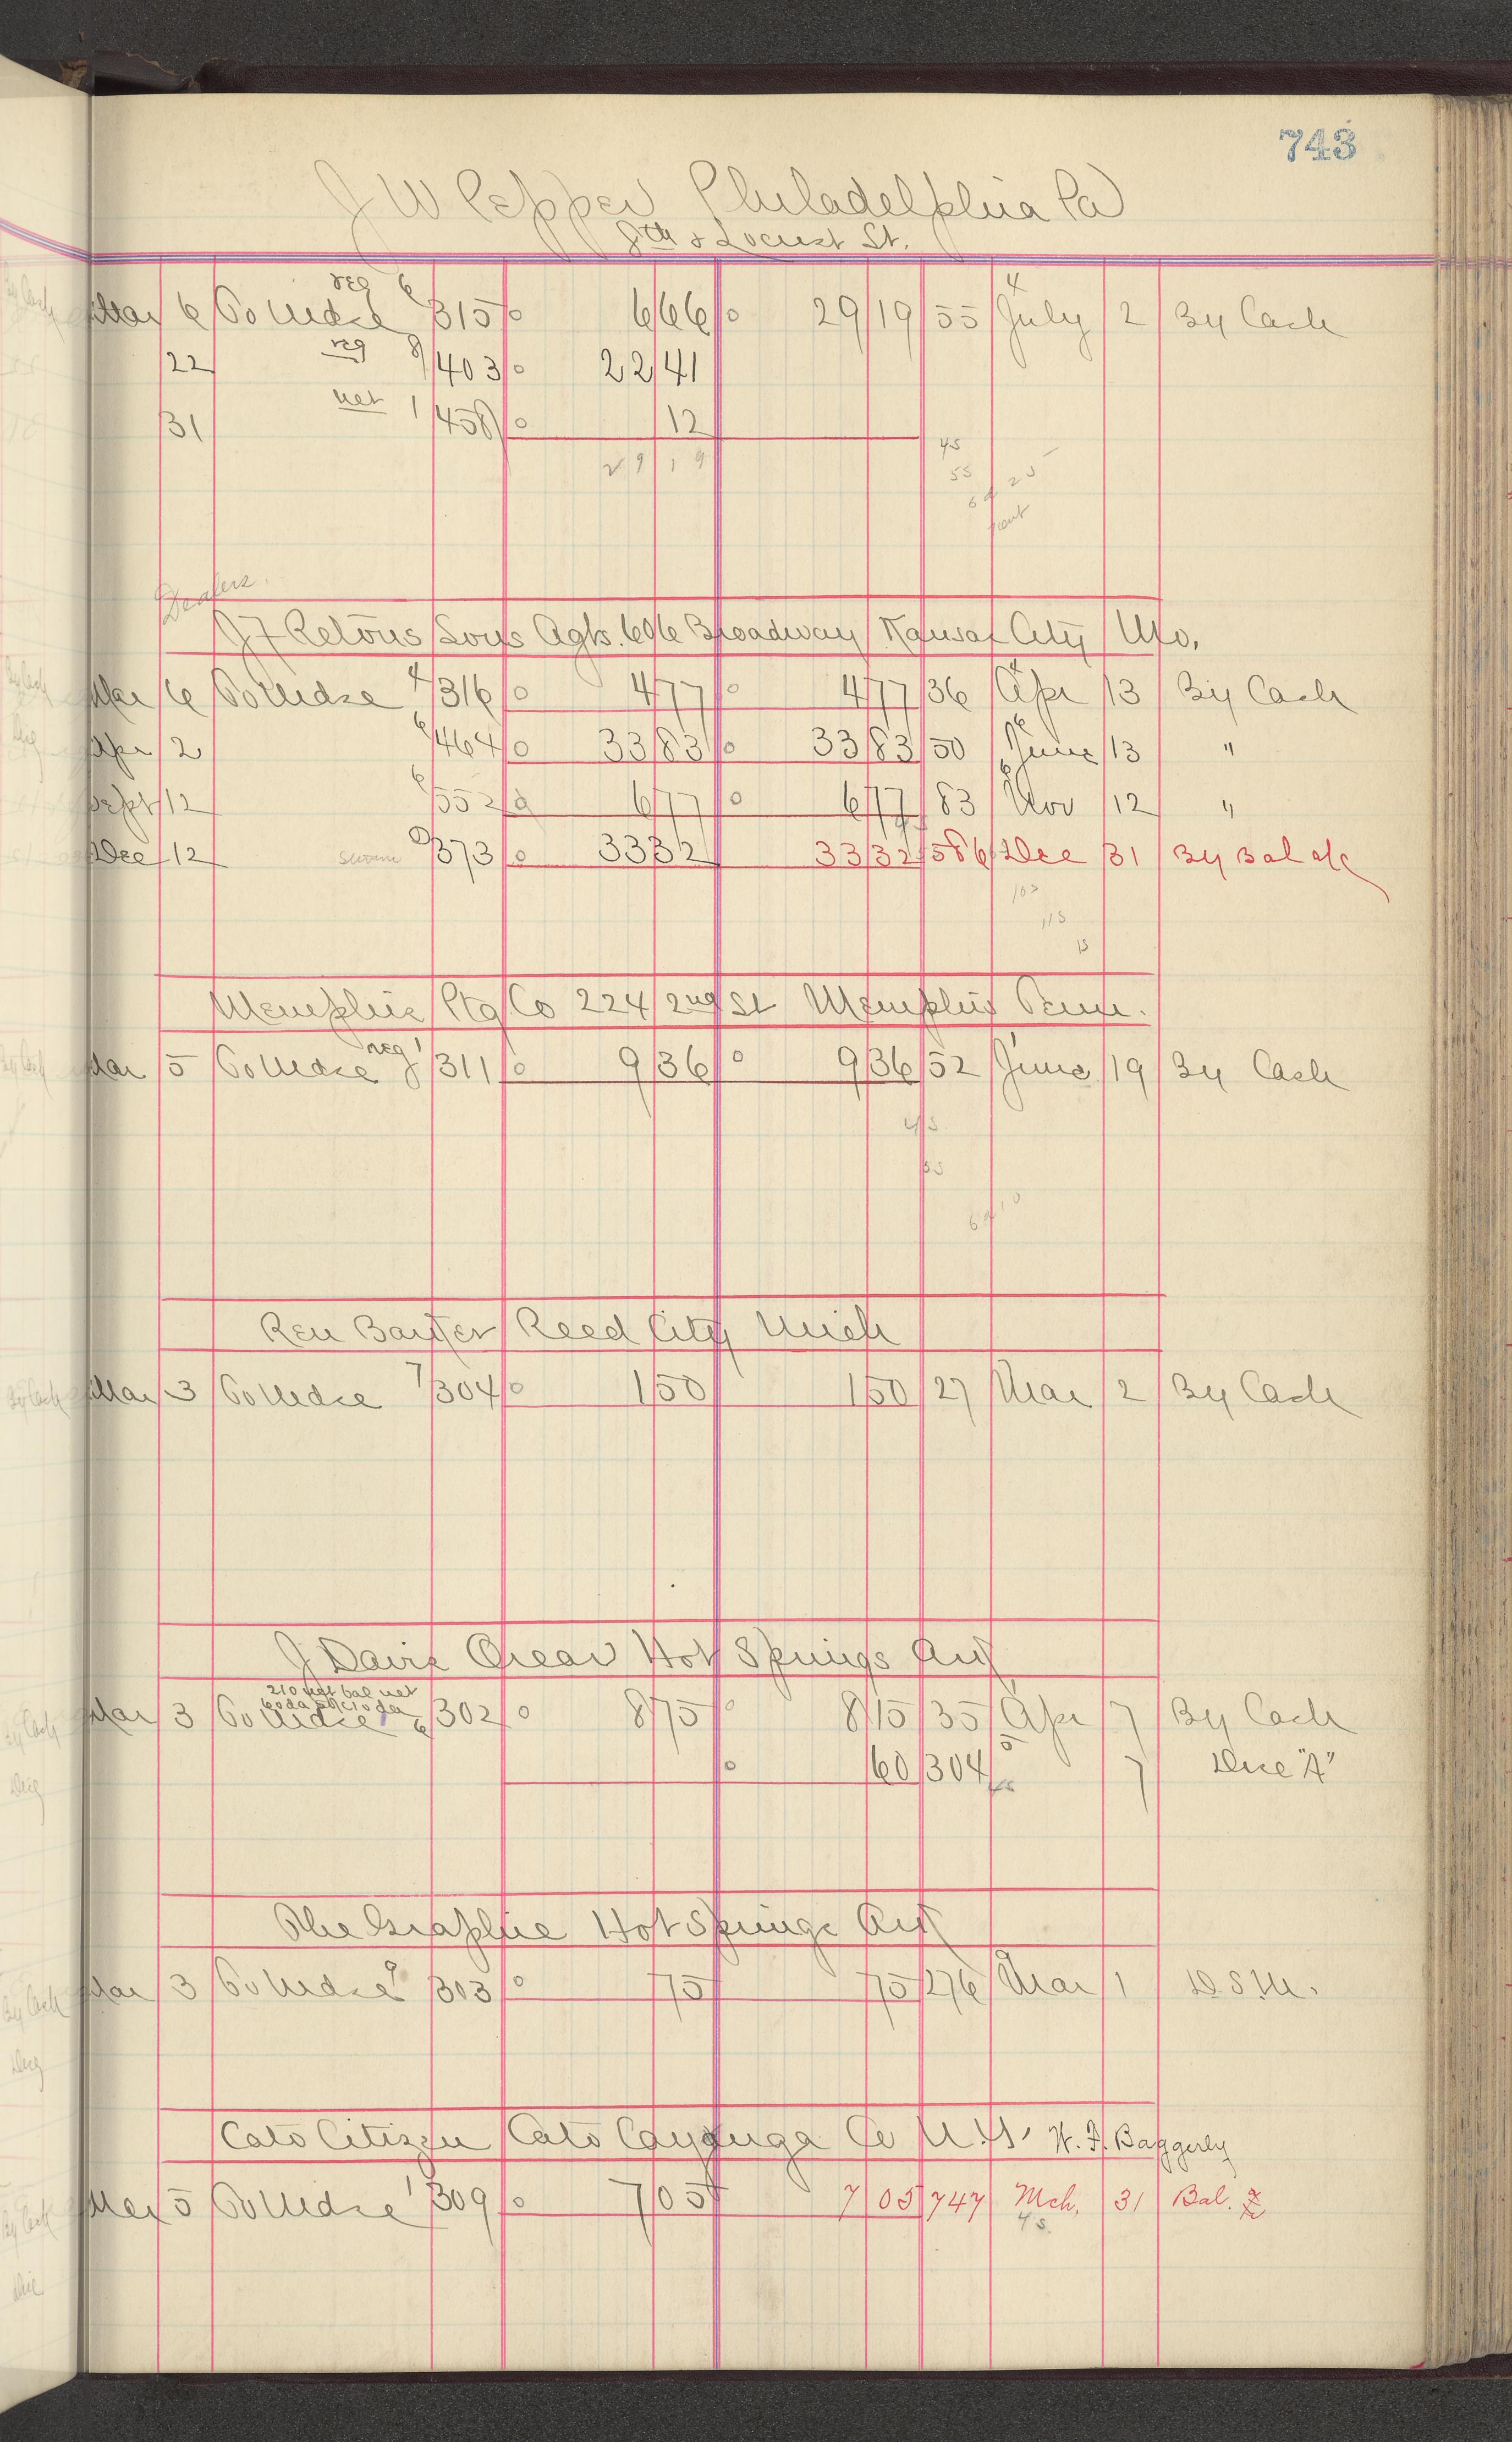 743
J W Pepper Philadelphia Pa
8th & Locust St.
reg 6
Mar 6 To Mdse 315 0 6 66 0 29 19 55 4 July 2 By Cash
22 reg 8 403 0 22 41
31 net 1 458 0 12
29 19
45
55
Dealers
Sons Agts. 606 Broadway Kansas City Mo.
Mar 6 To Mdse 4 316 0 4 77 0 4 77 36 Apr 13 By Cash
Apr 2 6 464 0 33 83 0 33 83 50 June 13 "
Sept 12 6 552 0 6 77 0 6 77 83 Nov 12 "
Dec 12 373 0 33 32 33 32 586 Dec 31 By Bal a/c
115
15
Memphis Ptg Co 224 2nd St Memphis Tenn.
Mar 5 To Mdse reg 1 311 0 9 36 0 9 36 52 June 19 By Cash
45
55
Ren Baxter Reed City Mich
Mar 3 To Mdse 7 304 0 1 50 1 50 27 Mar 2 By Cash
J Davis Orear Hot Springs Ark
210 net bal net
Mar 3 To Mdse 6 302 0 8 75 0 8 15 35 Apr 7 By Cash
0 60 304 7 Dne "A"
The Graphic Hot Springs Ark
Mar 3 To Mdse 9 303 0 75 75 276 Mar 1 D.S.M.
Cato Citizen Cato Cayuga Co N.Y. W. F. Baggerly
Mar 5 To Mdse 1 309 0 7 05 7 05 747 Mch. 31 Bal.
45.